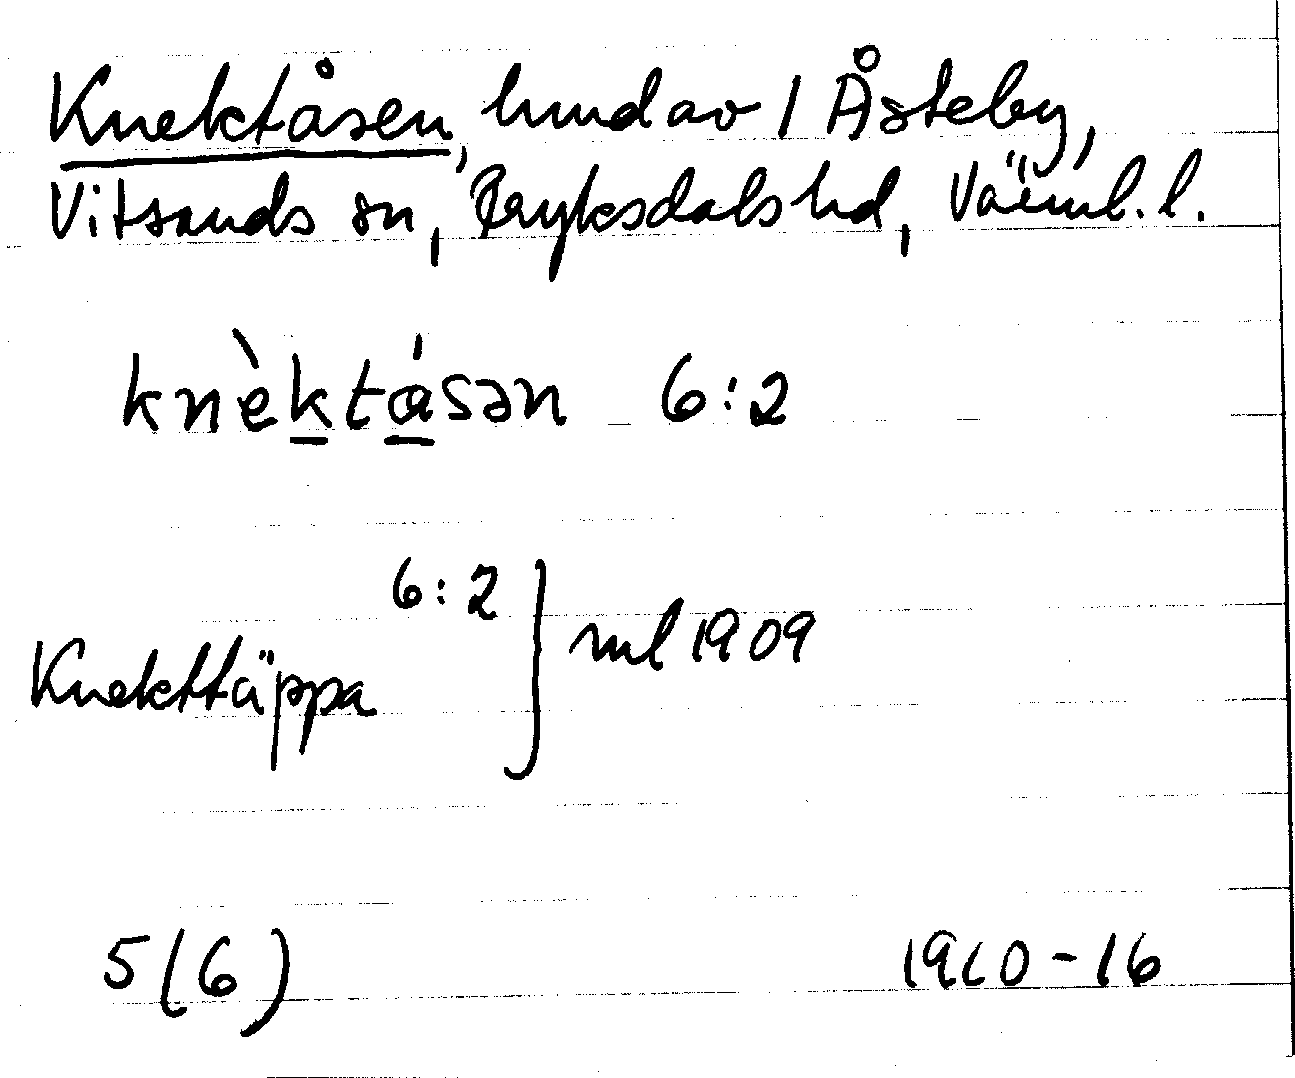 Knektåsen, hmd av 1 Åsteby,
Vitsands sn, Fryksdals hd, Värml. l.
knèktásən 6:2
6:2
Knekttäppa } ml 1909
5 (6) 1910-16